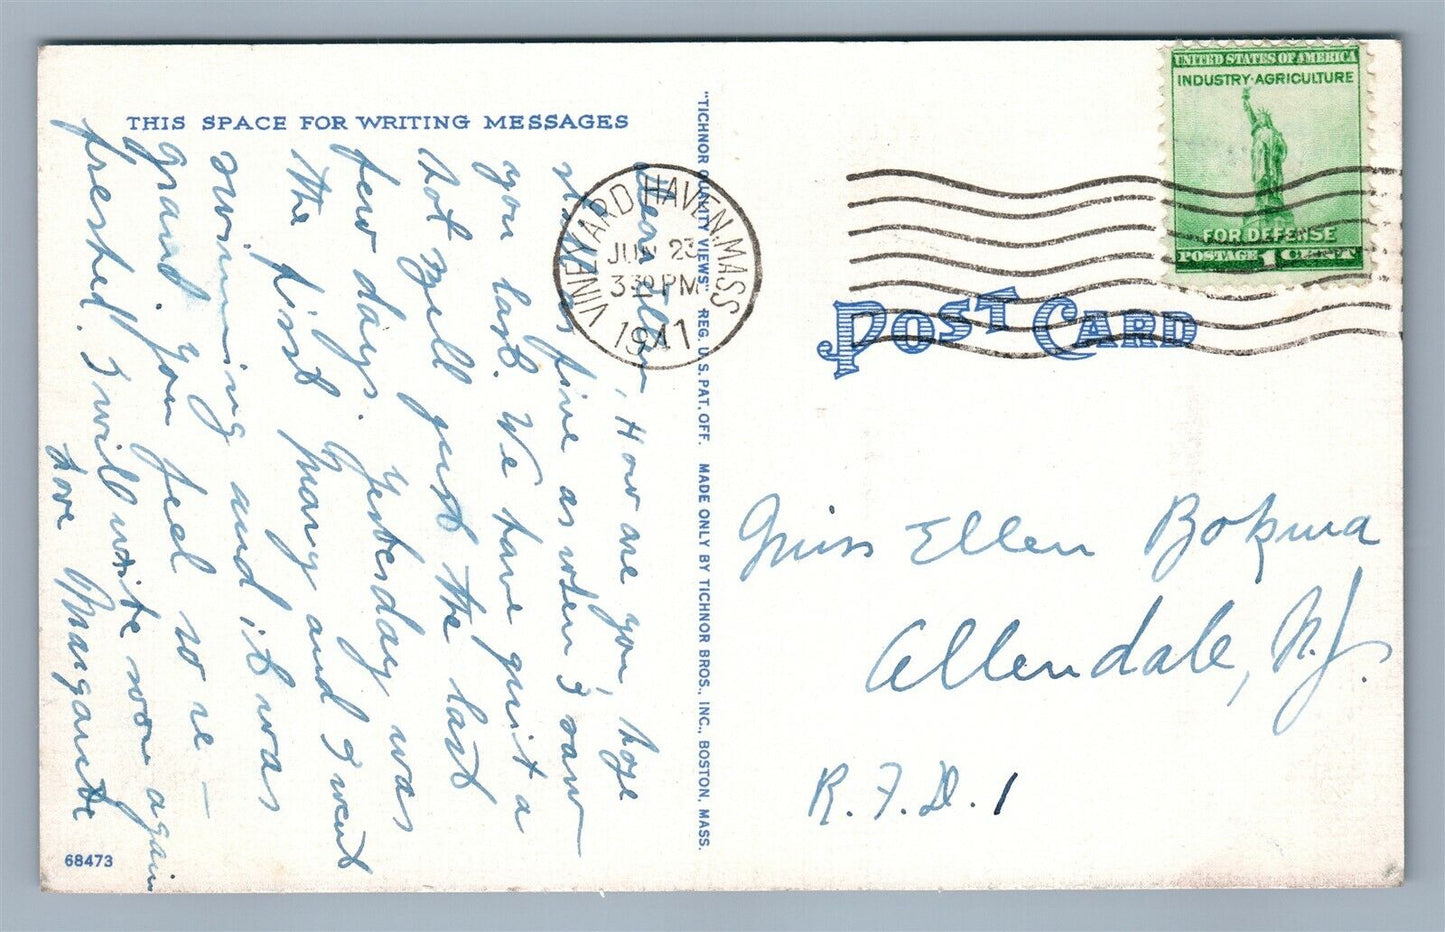 THIS SPACE FOR WRITING MESSAGES
Dear Ellen, How are you, hope
still as fine as when I saw
you last. We have quit a
hot spell just the last
few days. Yesterday was
the first Mary and I went
swimming and it was
grand. You feel so re-
freshed. I will write soon again
Love Margarite
68473
"TICHNOR QUALITY VIEWS," REG. U. S. PAT. OFF. MADE ONLY BY TICHNOR BROS., INC., BOSTON, MASS.
VINEYARD HAVEN, MASS
JUN 23
3 30 PM
1941
UNITED STATES OF AMERICA
INDUSTRY·AGRICULTURE
FOR DEFENSE
POSTAGE 1 CENT
POST CARD
Miss Ellen Bokma
Allendale, N.J.
R.F.D. 1